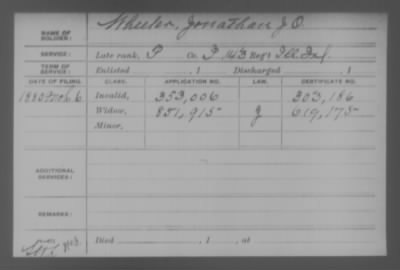 NAME OF SOLDIER: Wheeler, Jonathan J. O.
SERVICE: Late rank, P Co. I, 143 Reg't Ill Inf.
TERM OF SERVICE: Enlisted , 1 Discharged , 1
DATE OF FILING. CLASS. APPLICATION NO. LAW. CERTIFICATE NO.
1880 6 Invalid, 353,006 303,186
Widow, 851,915 619,175
Minor,
ADDITIONAL SERVICES:
REMARKS:
Died , 1 , at